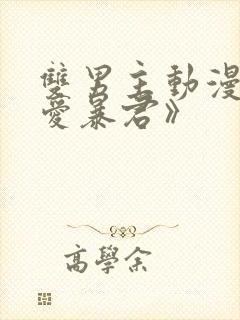 雙男主動漫
愛暴君》
高學余